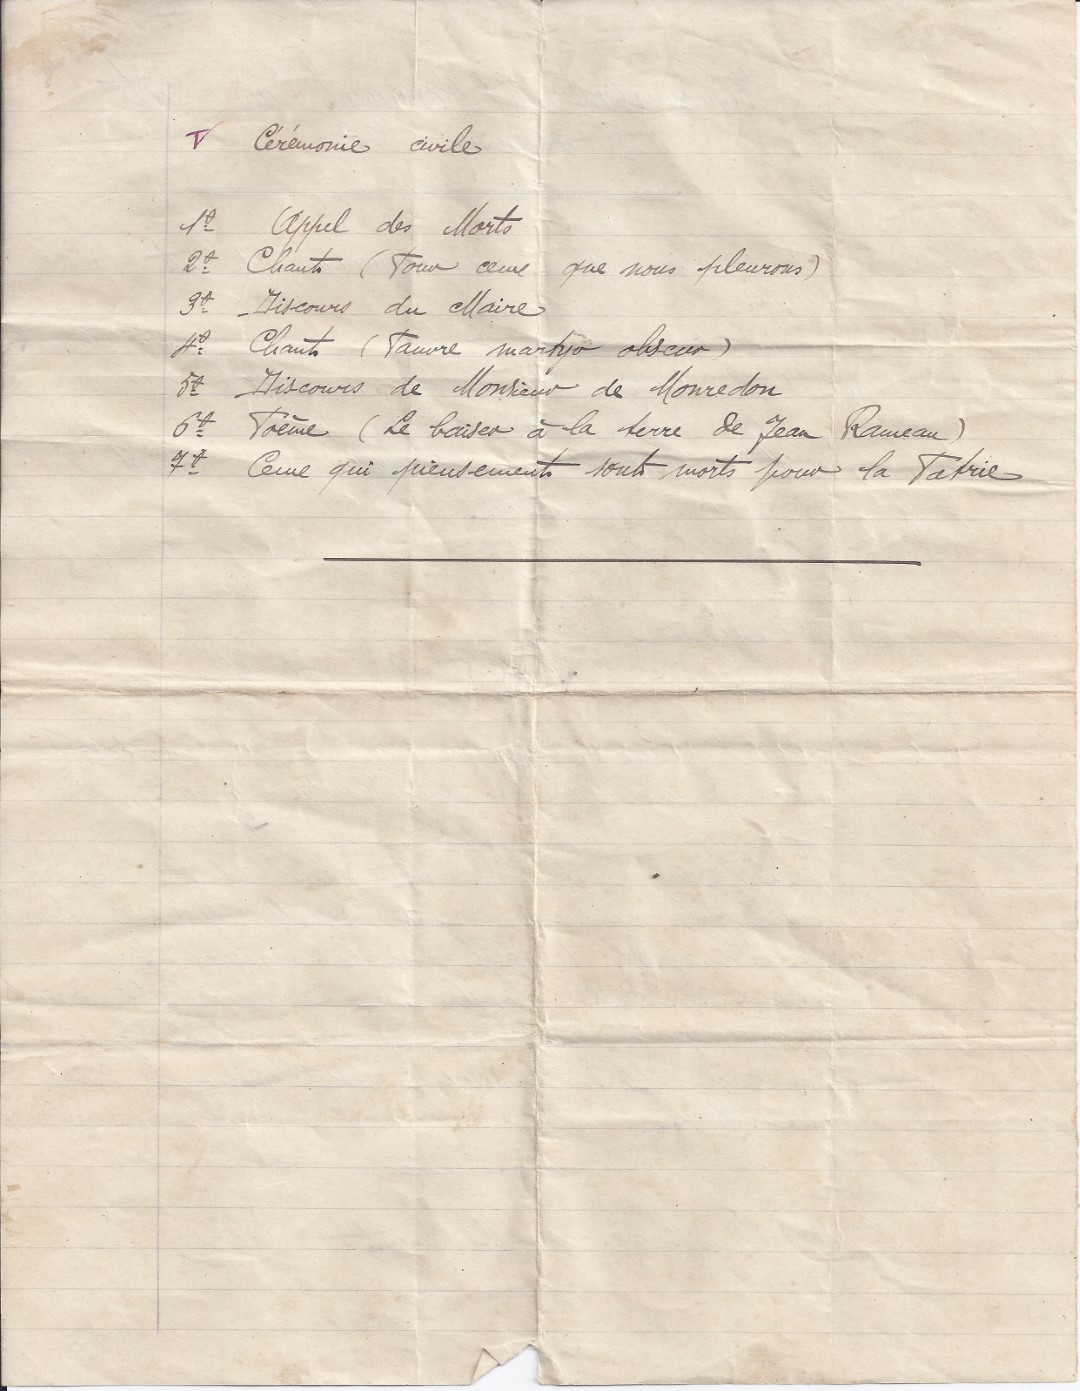 V Cérémonie civile
1º Appel des Morts
2º Chant (Pour ceux que nous pleurons)
3º Discours du Maire
4º Chant (Pauvre martyr obscur)
5º Discours de Monsieur de Monredon
6º Poême (Le baiser à la terre de Jean Rameau)
7º Ceux qui pieusement sont morts pour la Patrie